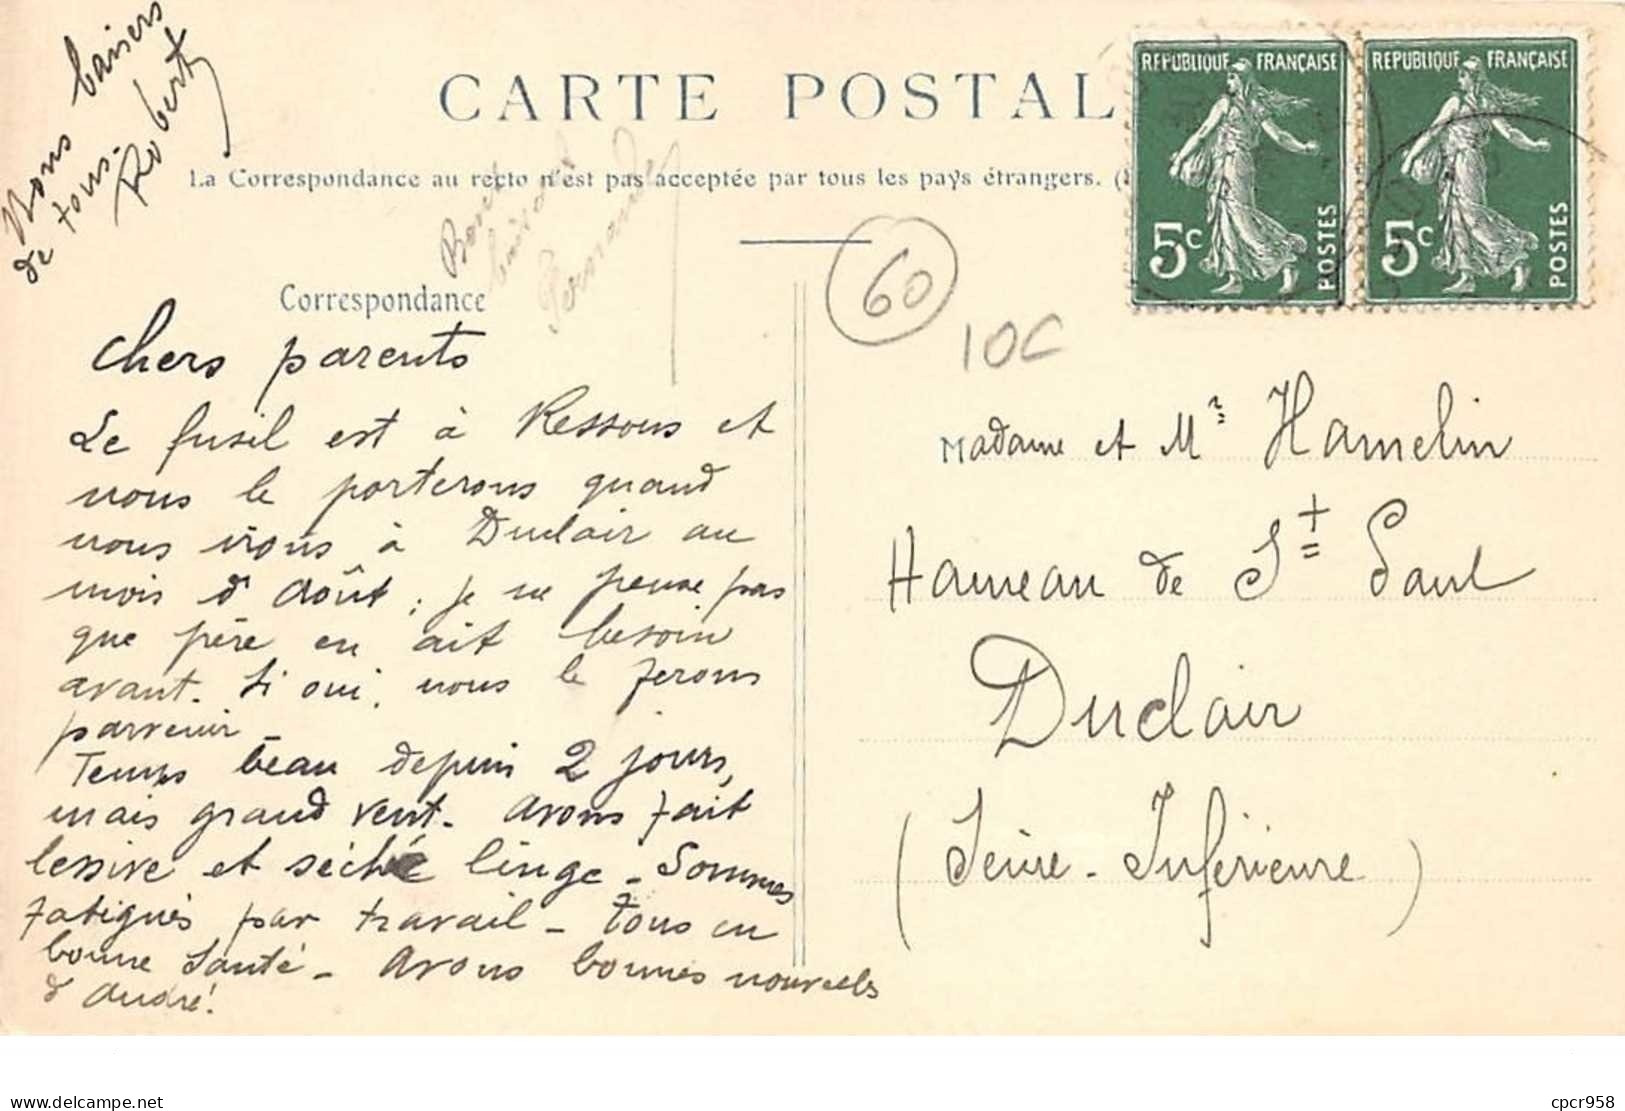 Bons baisers
de tous.
Robert
CARTE POSTAL
La Correspondance au recto n'est pas acceptée par tous les pays étrangers. (
Bons
baisers
Fernande
Correspondance
Chers parents
Le fusil est à Ressons et
nous le porterons quand
nous irons à Duclair au
mois d'août ; je ne pense pas
que père en ait besoin
avant. Si oui, nous le ferons
parvenir.
Temps beau depuis 2 jours,
mais grand vent. Avons fait
lessive et séché linge - Sommes
fatigués par travail - Tous en
bonne santé - Avons bonnes nouvelles
d'André.
REPUBLIQUE FRANÇAISE
5c
POSTES
REPUBLIQUE FRANÇAISE
5c
POSTES
60
10C
Madame et Mr Hamelin
Hameau de St Paul
Duclair
(Seine-Inférieure)
delcampe.net
cpcr958